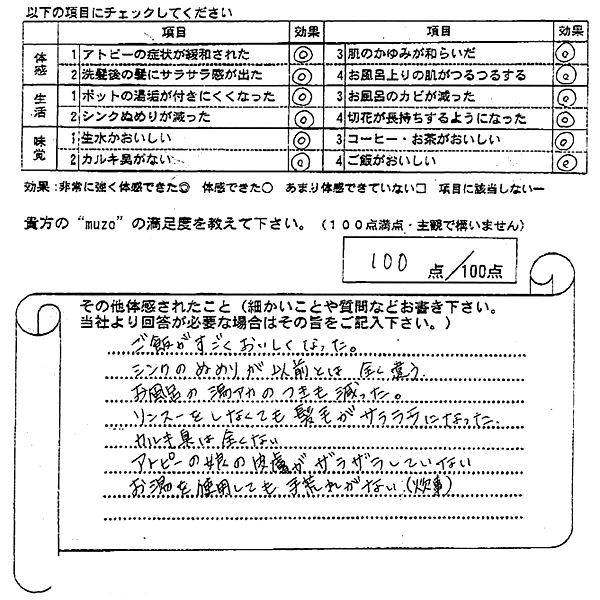 以下の項目にチェックしてください
項目 効果 項目 効果
体感 1 アトピーの症状が緩和された ◎ 3 肌のかゆみが和らいだ ◎
2 洗髪後の髪にサラサラ感が出た ◎ 4 お風呂上りの肌がつるつるする ◎
生活 1 ポットの湯垢が付きにくくなった ◎ 3 お風呂のカビが減った ◎
2 シンクぬめりが減った ◎ 4 切花が長持ちするようになった ◎
味覚 1 生水がおいしい ◎ 3 コーヒー・お茶がおいしい ◎
2 カルキ臭がない ◎ 4 ご飯がおいしい ◎
効果：非常に強く体感できた◎ 体感できた○ あまり体感できていない□ 項目に該当しないー
貴方の“muzo”の満足度を教えて下さい。（１００点満点・主観で構いません）
100 点/100点
その他体感されたこと（細かいことや質問などお書き下さい。
当社より回答が必要な場合はその旨をご記入下さい。）
ご飯がすごくおいしくなった。
シンクのぬめりが以前とは全く違う.
お風呂の湯アカのつきも減った。
リンスーをしなくても髪毛がサラララになった.
カルキ臭は全くない
アトピーの娘の皮膚がザラザラしていない
お湯を使用しても手荒れがない.(炊事)